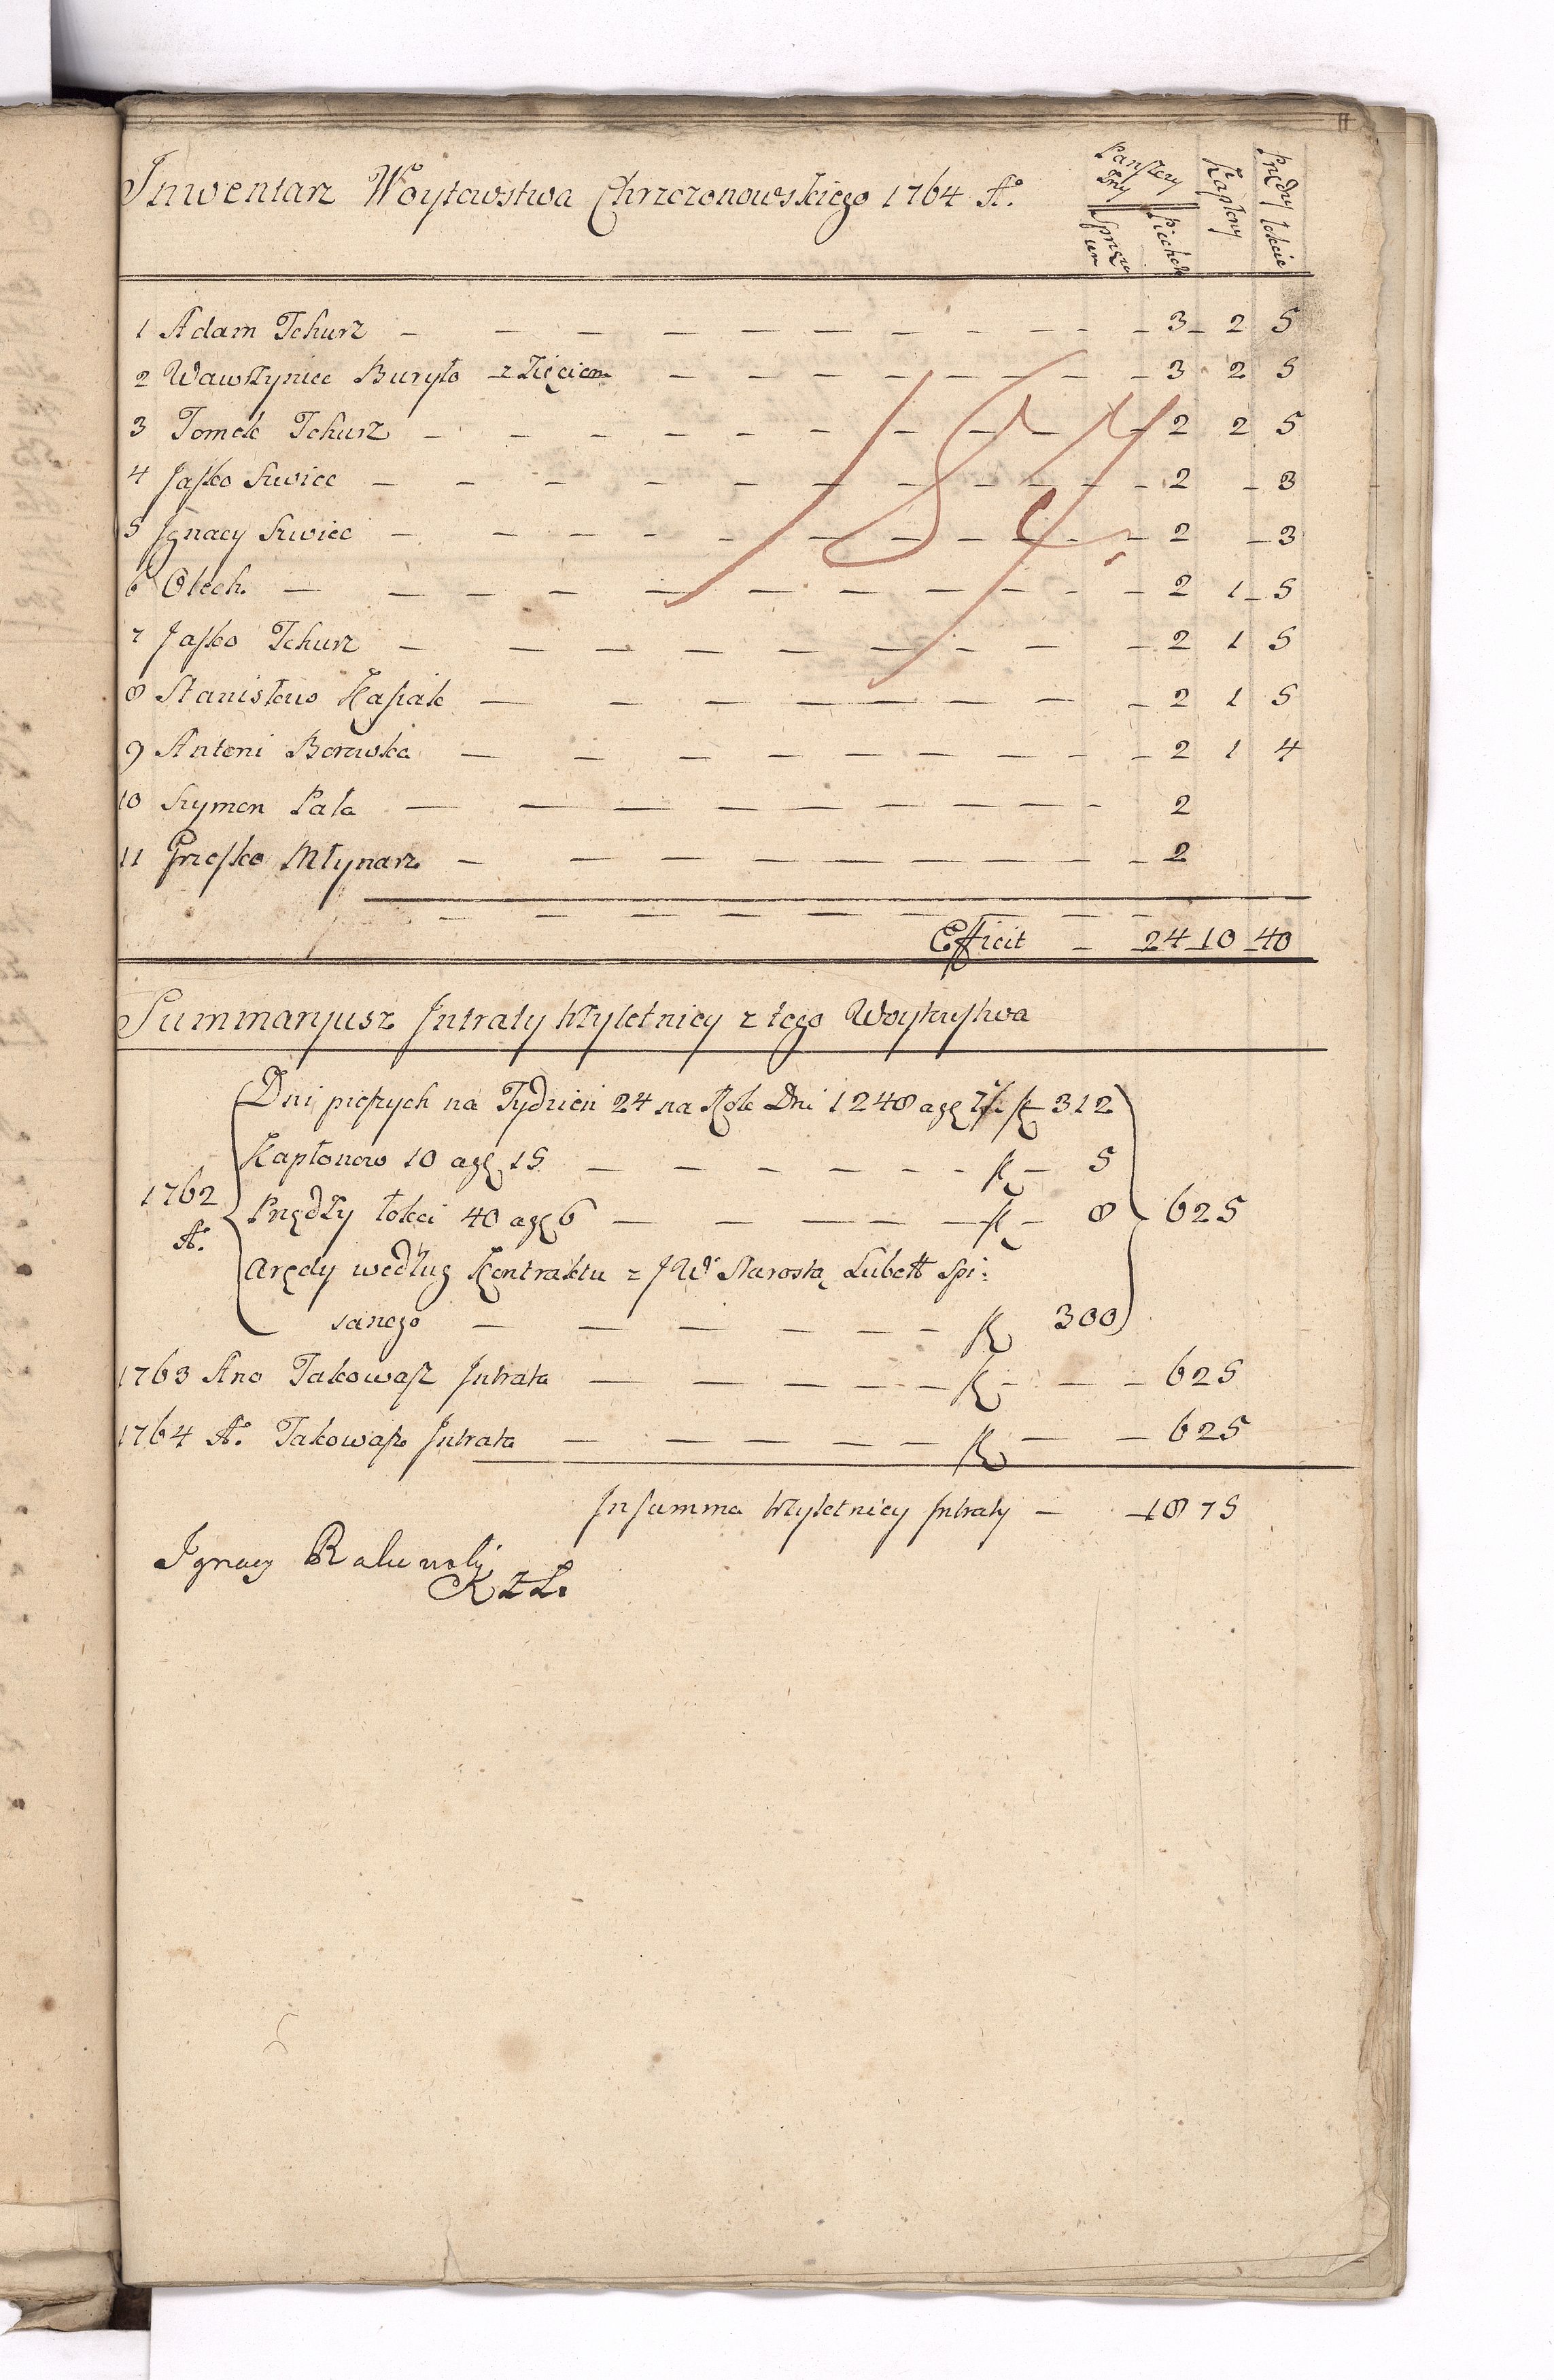 Inwentarz Woytowstwa Chrzczonowskiego 1764 Aº.
Panszczyzny Kapłony Przędzy łokcie
Sprzężne Piechota
1 Adam Tchurz — 3 — 2 5
2 Wawrzyniec Buryło z Zięciem — 3 2 5
3 Tomek Tchurz — 2 2 5
4 Jaśko Szwiec — 2 — 3
5 Ignacy Szwiec — 2 — 3
6 Olech. — 2 1 — 5
7 Jaśko Tchurz — 2 1 5
8 Stanisław Kasiak — 2 1 5
9 Antoni Borowka — 2 1 4
10 Szymon Pała — 2
11 Grzesko Młynarz — 2
Efficit — 24 — 10 — 40
Summaryusz Intraty trzyletniey z tego Woytowstwa
Dni pieszych na Tydzień 24 na Rok Dni 1248 agę 312
Kapłonow 10 agę 15 — 5
1762 Aº. Przędzy łokci 40 agę 6 — 8 625
Arędy według Kontraktu z JW Starostą Lubett Spi:
sanego — 300
1763 Ano Takowasz Intrata — 625
1764 Aº. Takowasz Intrata — 625
In Summa trzyletniey Intraty — 1875
Ignacy
K Z L.